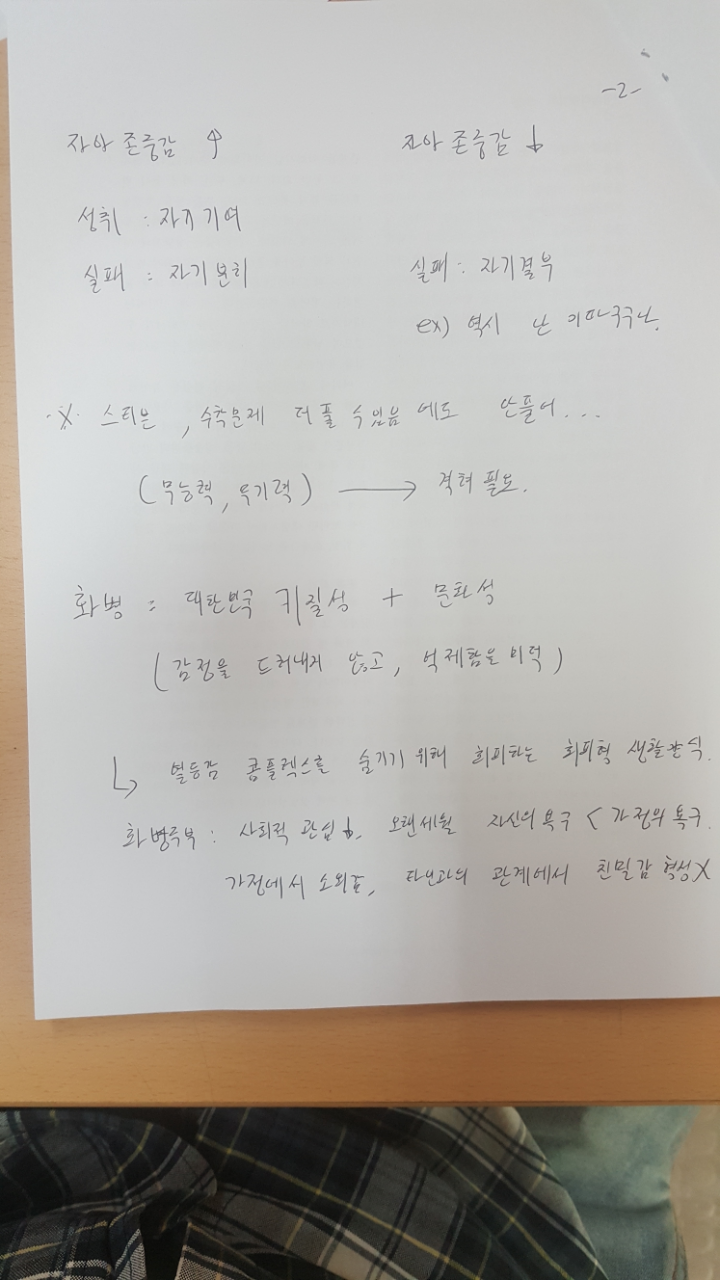 -2-
자아 존중감 ↑ 자아 존중감 ↓
성취 : 자기기여
실패 : 자기본위 실패 : 자기결부
ex) 역시 난 이따구구나.
※ 스티븐, 수학문제 더 풀 수 있음에도 안풀어...
(무능력, 무기력) → 격려 필요.
화병 = 대한민국 기질성 + 문화성
(감정을 드러내지 않고, 억제함을 미덕)
↳ 열등감 콤플렉스를 숨기기 위해 회피하는 회피형 생활양식.
화병주부 : 사회적 관심↓. 오랜세월 자신의 욕구 < 가정의 욕구.
가정에서 소외로, 타인과의 관계에서 친밀감 형성X